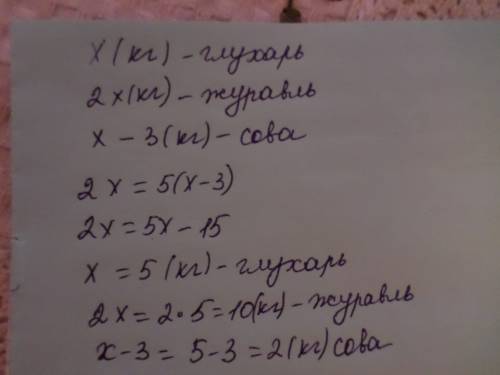 x (кг) - глухарь
2x (кг) - журавль
x - 3 (кг) - сова
2x = 5(x-3)
2x = 5x - 15
x = 5 (кг) - глухарь
2x = 2·5 = 10(кг) - журавль
x-3 = 5-3 = 2(кг) сова